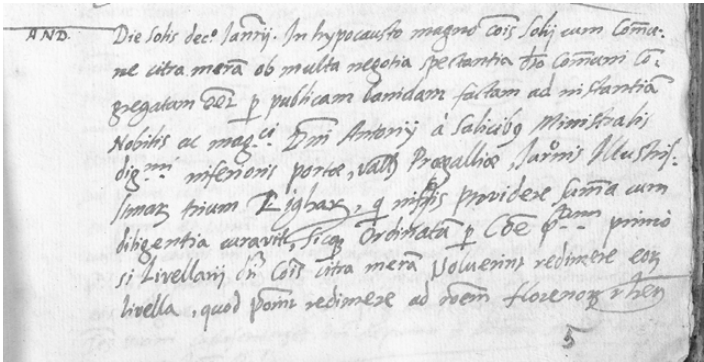 AND.
Die Solis dec.º Jan̄rij. In hypocausto magno Cōis Solij cum Com̄u:
ne citra merā ob multa negotia spectantia dto Comuni Co:
gregatam p publicam banidam factam ad instantiā
Nobilis ac mag.ci Dn̄i Antonij à Salicibq Ministralis
dig.mi inferioris portæ, vall Prægalliæ,
trium providere sum̄a cum
diligentia curavit, sicq Ordinatā p Cōē primo
si Livellarij Cōis citra merā Voluerint redimere eor
livella, quod redimere ad florenor rhen
5